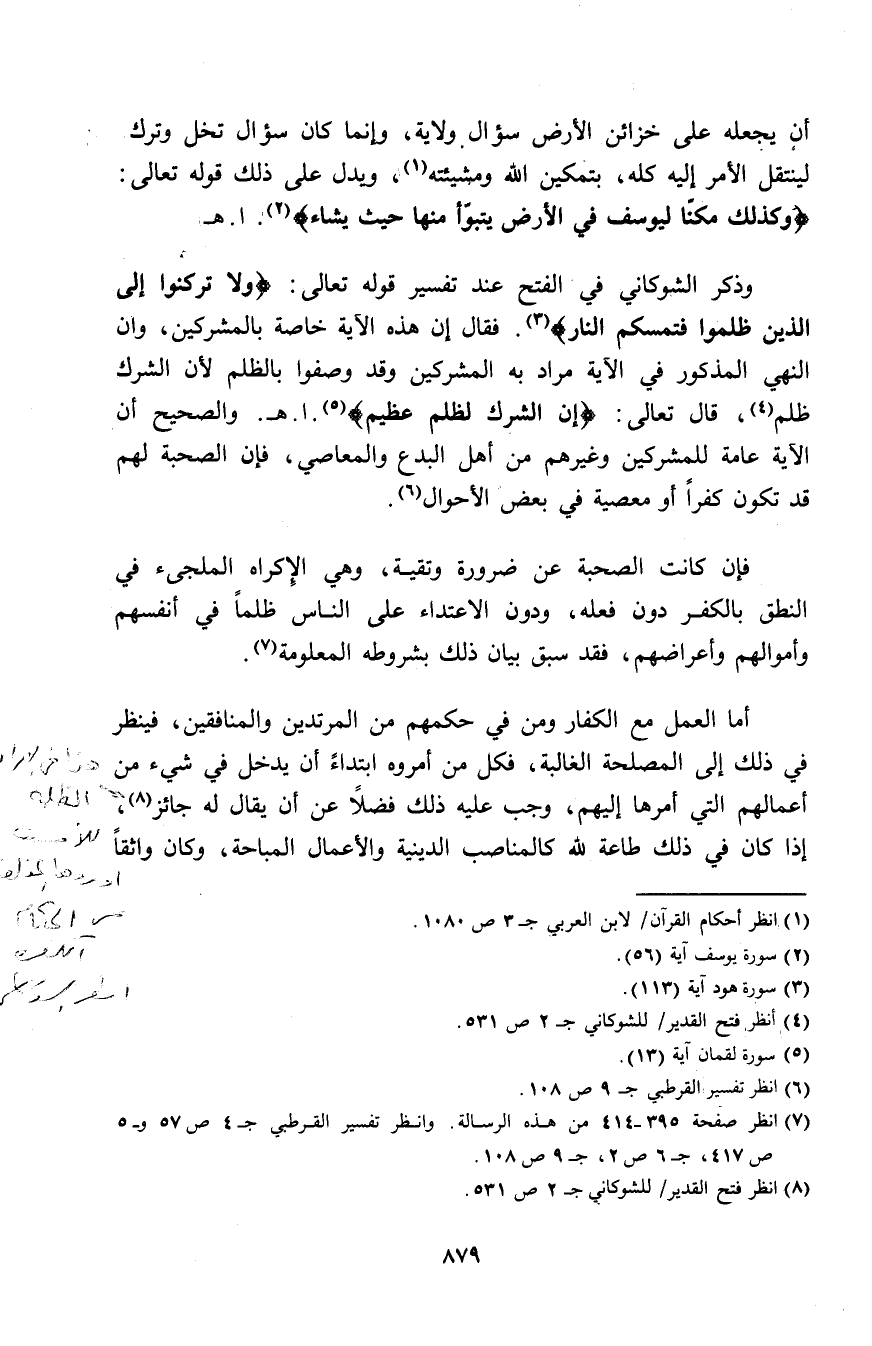 أن يجعله على خزائن الأرض سؤال ولاية، وإنما كان سؤال تخل وترك
لينتقل الأمر إليه كله، بتمكين الله ومشيئته(١)، ويدل على ذلك قوله تعالى:
﴿وكذلك مكنّا ليوسف في الأرض يتبوّأ منها حيث يشاء﴾(٢). ا.هـ
وذكر الشوكاني في الفتح عند تفسير قوله تعالى: ﴿ولا تركنوا إلى
الذين ظلموا فتمسكم النار﴾(٣). فقال إن هذه الآية خاصة بالمشركين، وان
النهي المذكور في الآية مراد به المشركين وقد وصفوا بالظلم لأن الشرك
ظلم(٤)، قال تعالى: ﴿إن الشرك لظلم عظيم﴾(٥).ا.هـ. والصحيح أن
الآية عامة للمشركين وغيرهم من أهل البدع والمعاصي، فإن الصحبة لهم
قد تكون كفراً أو معصية في بعض الأحوال(٦).
فإن كانت الصحبة عن ضرورة وتقيـة، وهي الإكراه الملجىء في
النطق بالكفـر دون فعله، ودون الاعتداء على النـاس ظلماً في أنفسهم
وأموالهم وأعراضهم، فقد سبق بيان ذلك بشروطه المعلومة(٧).
أما العمل مع الكفار ومن في حكمهم من المرتدين والمنافقين، فينظر
في ذلك إلى المصلحة الغالبة، فكل من أمروه ابتداءً أن يدخل في شيء من
أعمالهم التي أمرها إليهم، وجب عليه ذلك فضلًا عن أن يقال له جائز(٨)،
إذا كان في ذلك طاعة لله كالمناصب الدينية والأعمال المباحة، وكان واثقاً
(١) انظر أحكام القرآن/ لابن العربي جـ ٣ ص ١٠٨٠.
(٢) سورة يوسف آية (٥٦).
(٣) سورة هود آية (١١٣).
(٤) أنظر فتح القدير/ للشوكاني جـ ٢ ص ٥٣١.
(٥) سورة لقمان آية (١٣).
(٦) انظر تفسير القرطبي جـ ٩ ص ١٠٨.
(٧) انظر صفحة ٣٩٥-٤١٤ من هـذه الرسـالة. وانـظر تفسير القـرطبي جـ ٤ ص ٥٧ وـ ٥
ص ٤١٧، جـ ٦ ص ٢، جـ ٩ ص ١٠٨.
(٨) انظر فتح القدير/ للشوكاني جـ ٢ ص ٥٣١.
٨٧٩